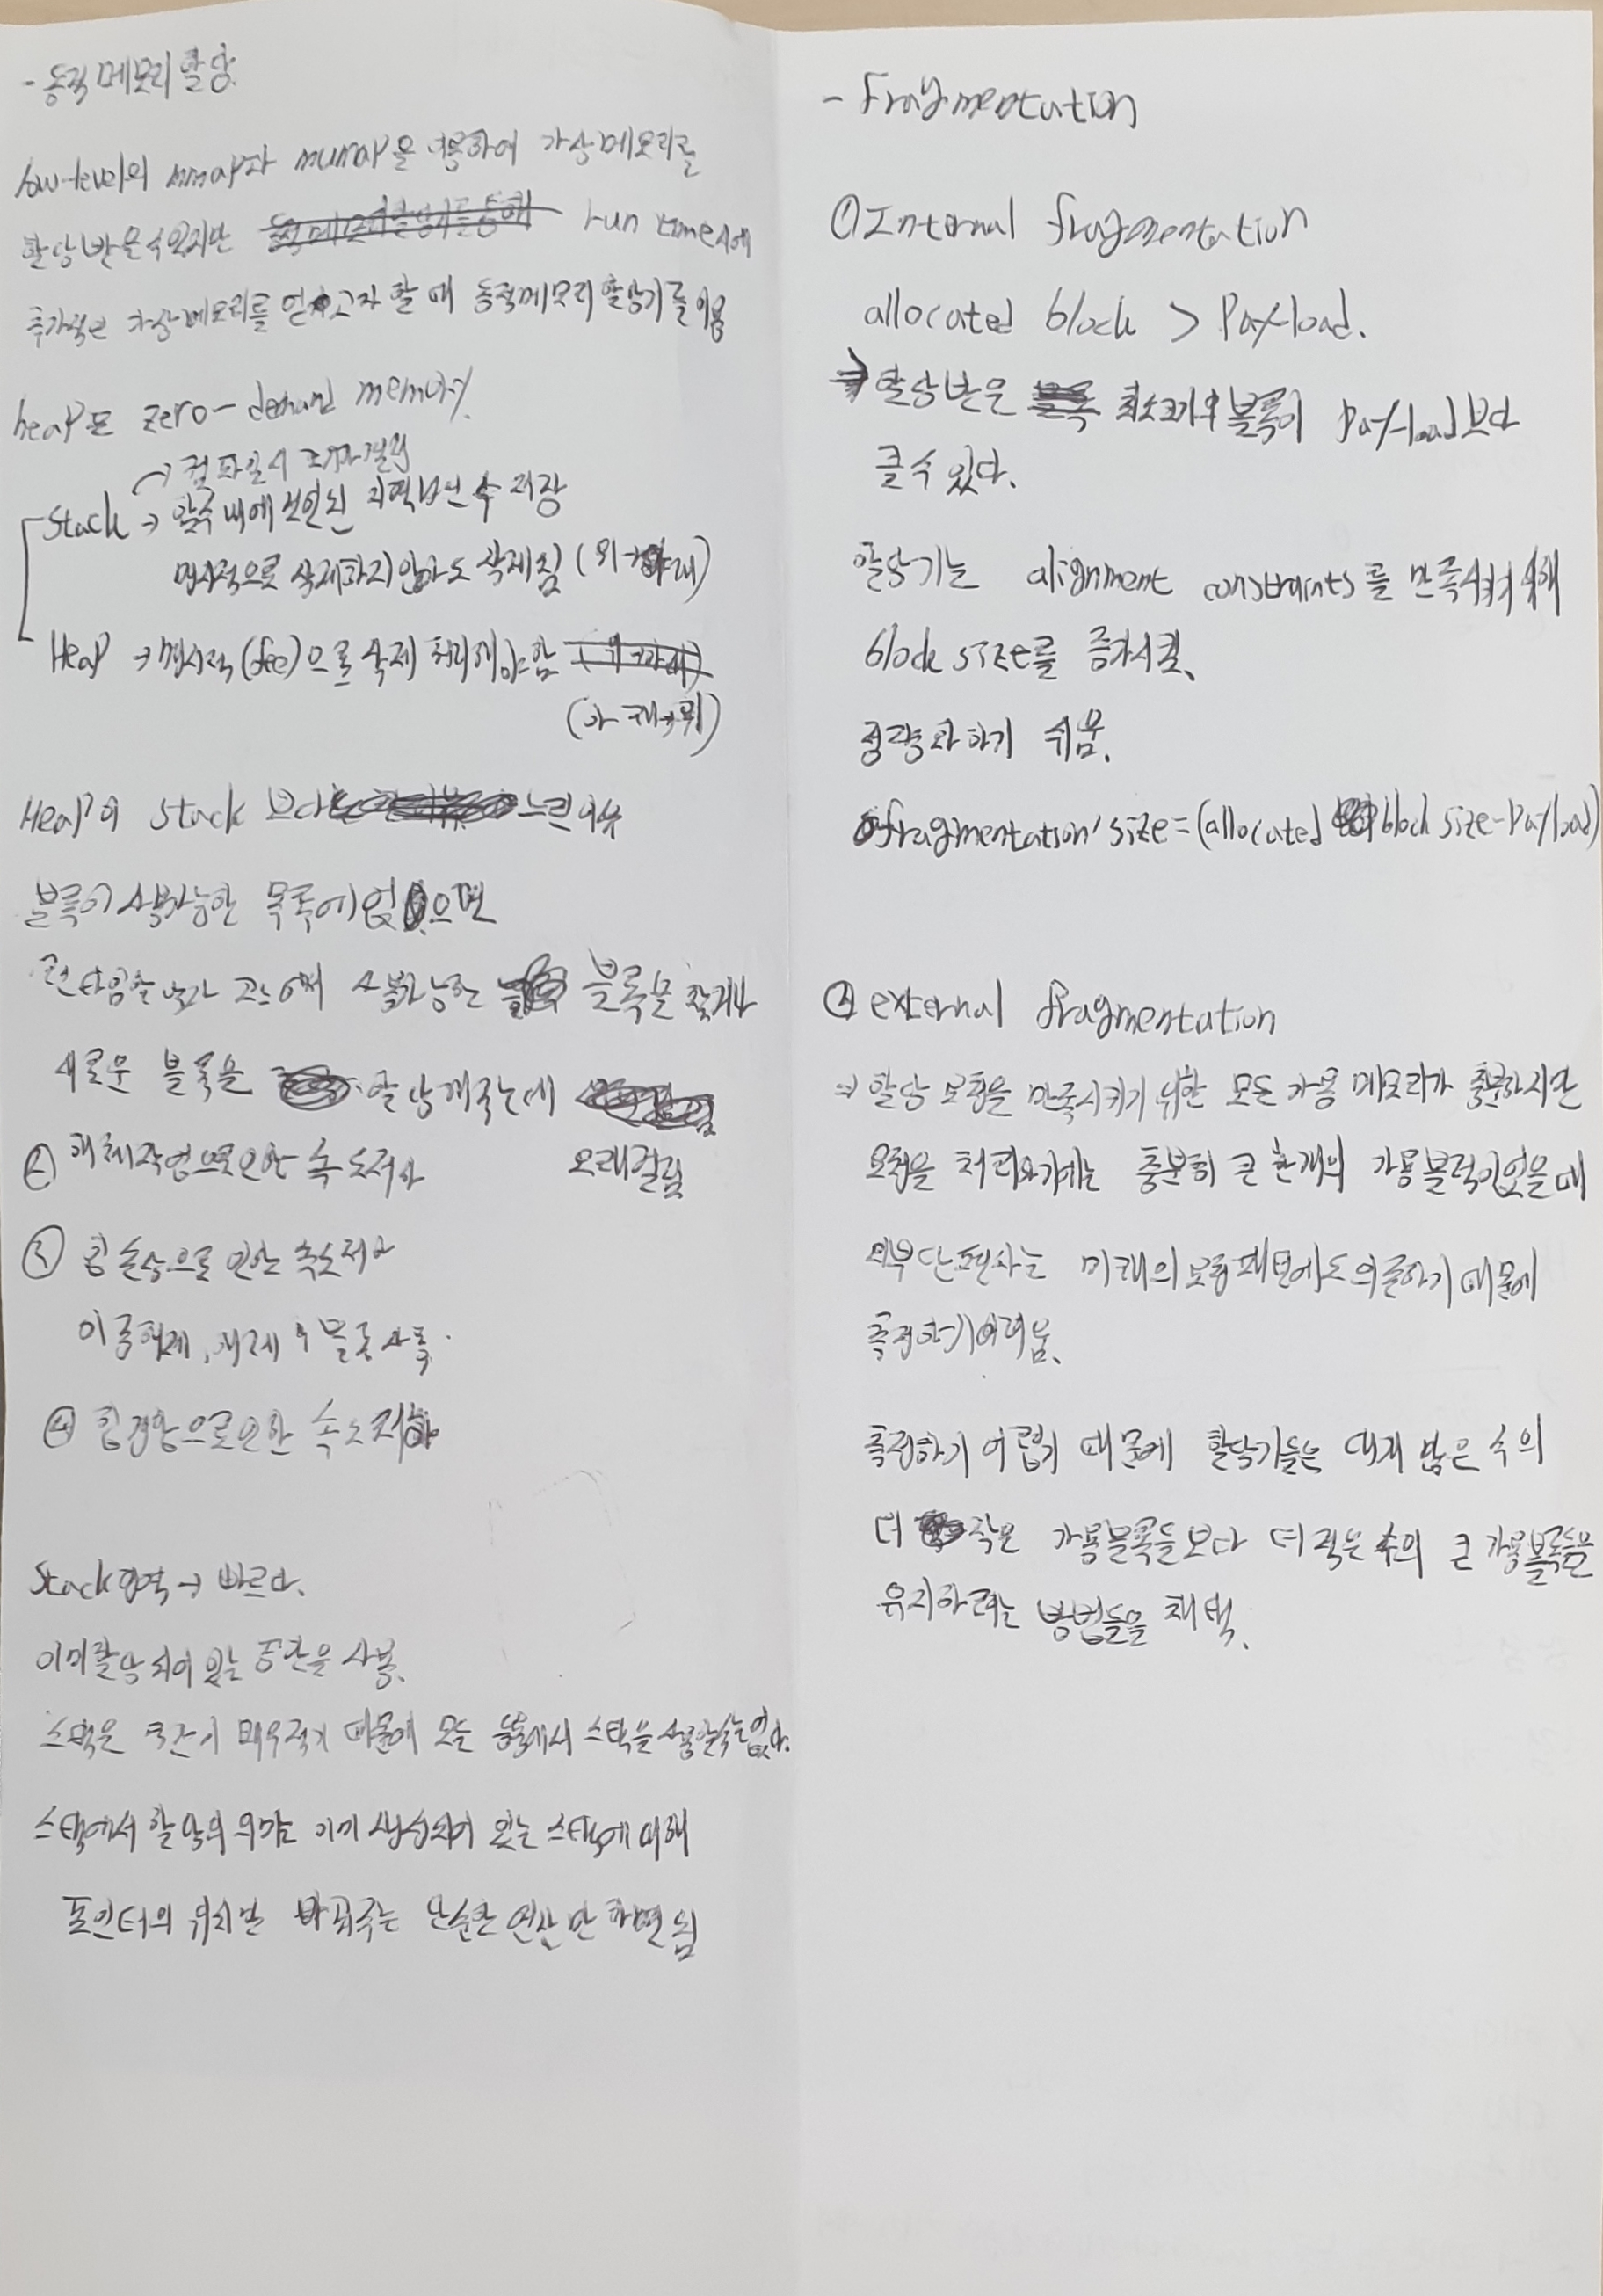 - 동적 메모리 할당
low-level의 mmap과 munmap을 이용하여 가상메모리를
할당 받을 수 있지만 run time시에
추가적인 가상메모리를 얻고자 할 때 동적메모리 할당기를 이용
heap은 zero-demand memory.
→ 컴파일시 크기가 결정
Stack → 함수 내에 선언된 지역변수 저장
명시적으로 삭제하지 않아도 삭제됨 (위→아래)
Heap → 명시적(free)으로 삭제 처리해야 함
(아래→위)
Heap이 Stack 보다 느린 이유
블록이 사용가능한 목록에 없으면
런타임을 사용가능한 블록을 찾거나
새로운 블록을 할당해주는데
오래걸림
② 해제작업으로 인한 속도저하
③ 힙 손상으로 인한 속도저하
이중해제, 해제 후 블록 사용.
④ 힙 경합으로 인한 속도 저하
Stack 영역 → 빠르다.
이미 할당 되어 있는 공간을 사용.
스택은 공간이 매우 적기 때문에 모든 응용에서 스택을 사용할 수는 없다.
스택에서 할당의 의미는 이미 생성되어 있는 스택에 대해
포인터의 위치만 바꿔주는 단순한 연산만 하면 됨
- Fragmentation
① Internal fragmentation
allocated block > Payload.
→ 할당 받은 최소크기의 블록이 Payload보다
클 수 있다.
할당기는 alignment constraints를 만족시키기 위해
block size를 증가시킴.
정량화하기 쉬움.
fragmentation' size = (allocated block size - Payload)
② external fragmentation
⇒ 할당 요청을 만족시키기 위한 모든 가용 메모리가 충분하지만
요청을 처리하기에는 충분히 큰 한개의 가용블럭이 없을 때
외부 단편화는 미래의 요청패턴에도 의존하기 때문에
측정하기 어려움.
측정하기 어렵기 때문에 할당기들은 대개 많은 수의
더 작은 가용블록들보다 더 적은 수의 큰 가용블록들을
유지하려는 방법들을 채택.